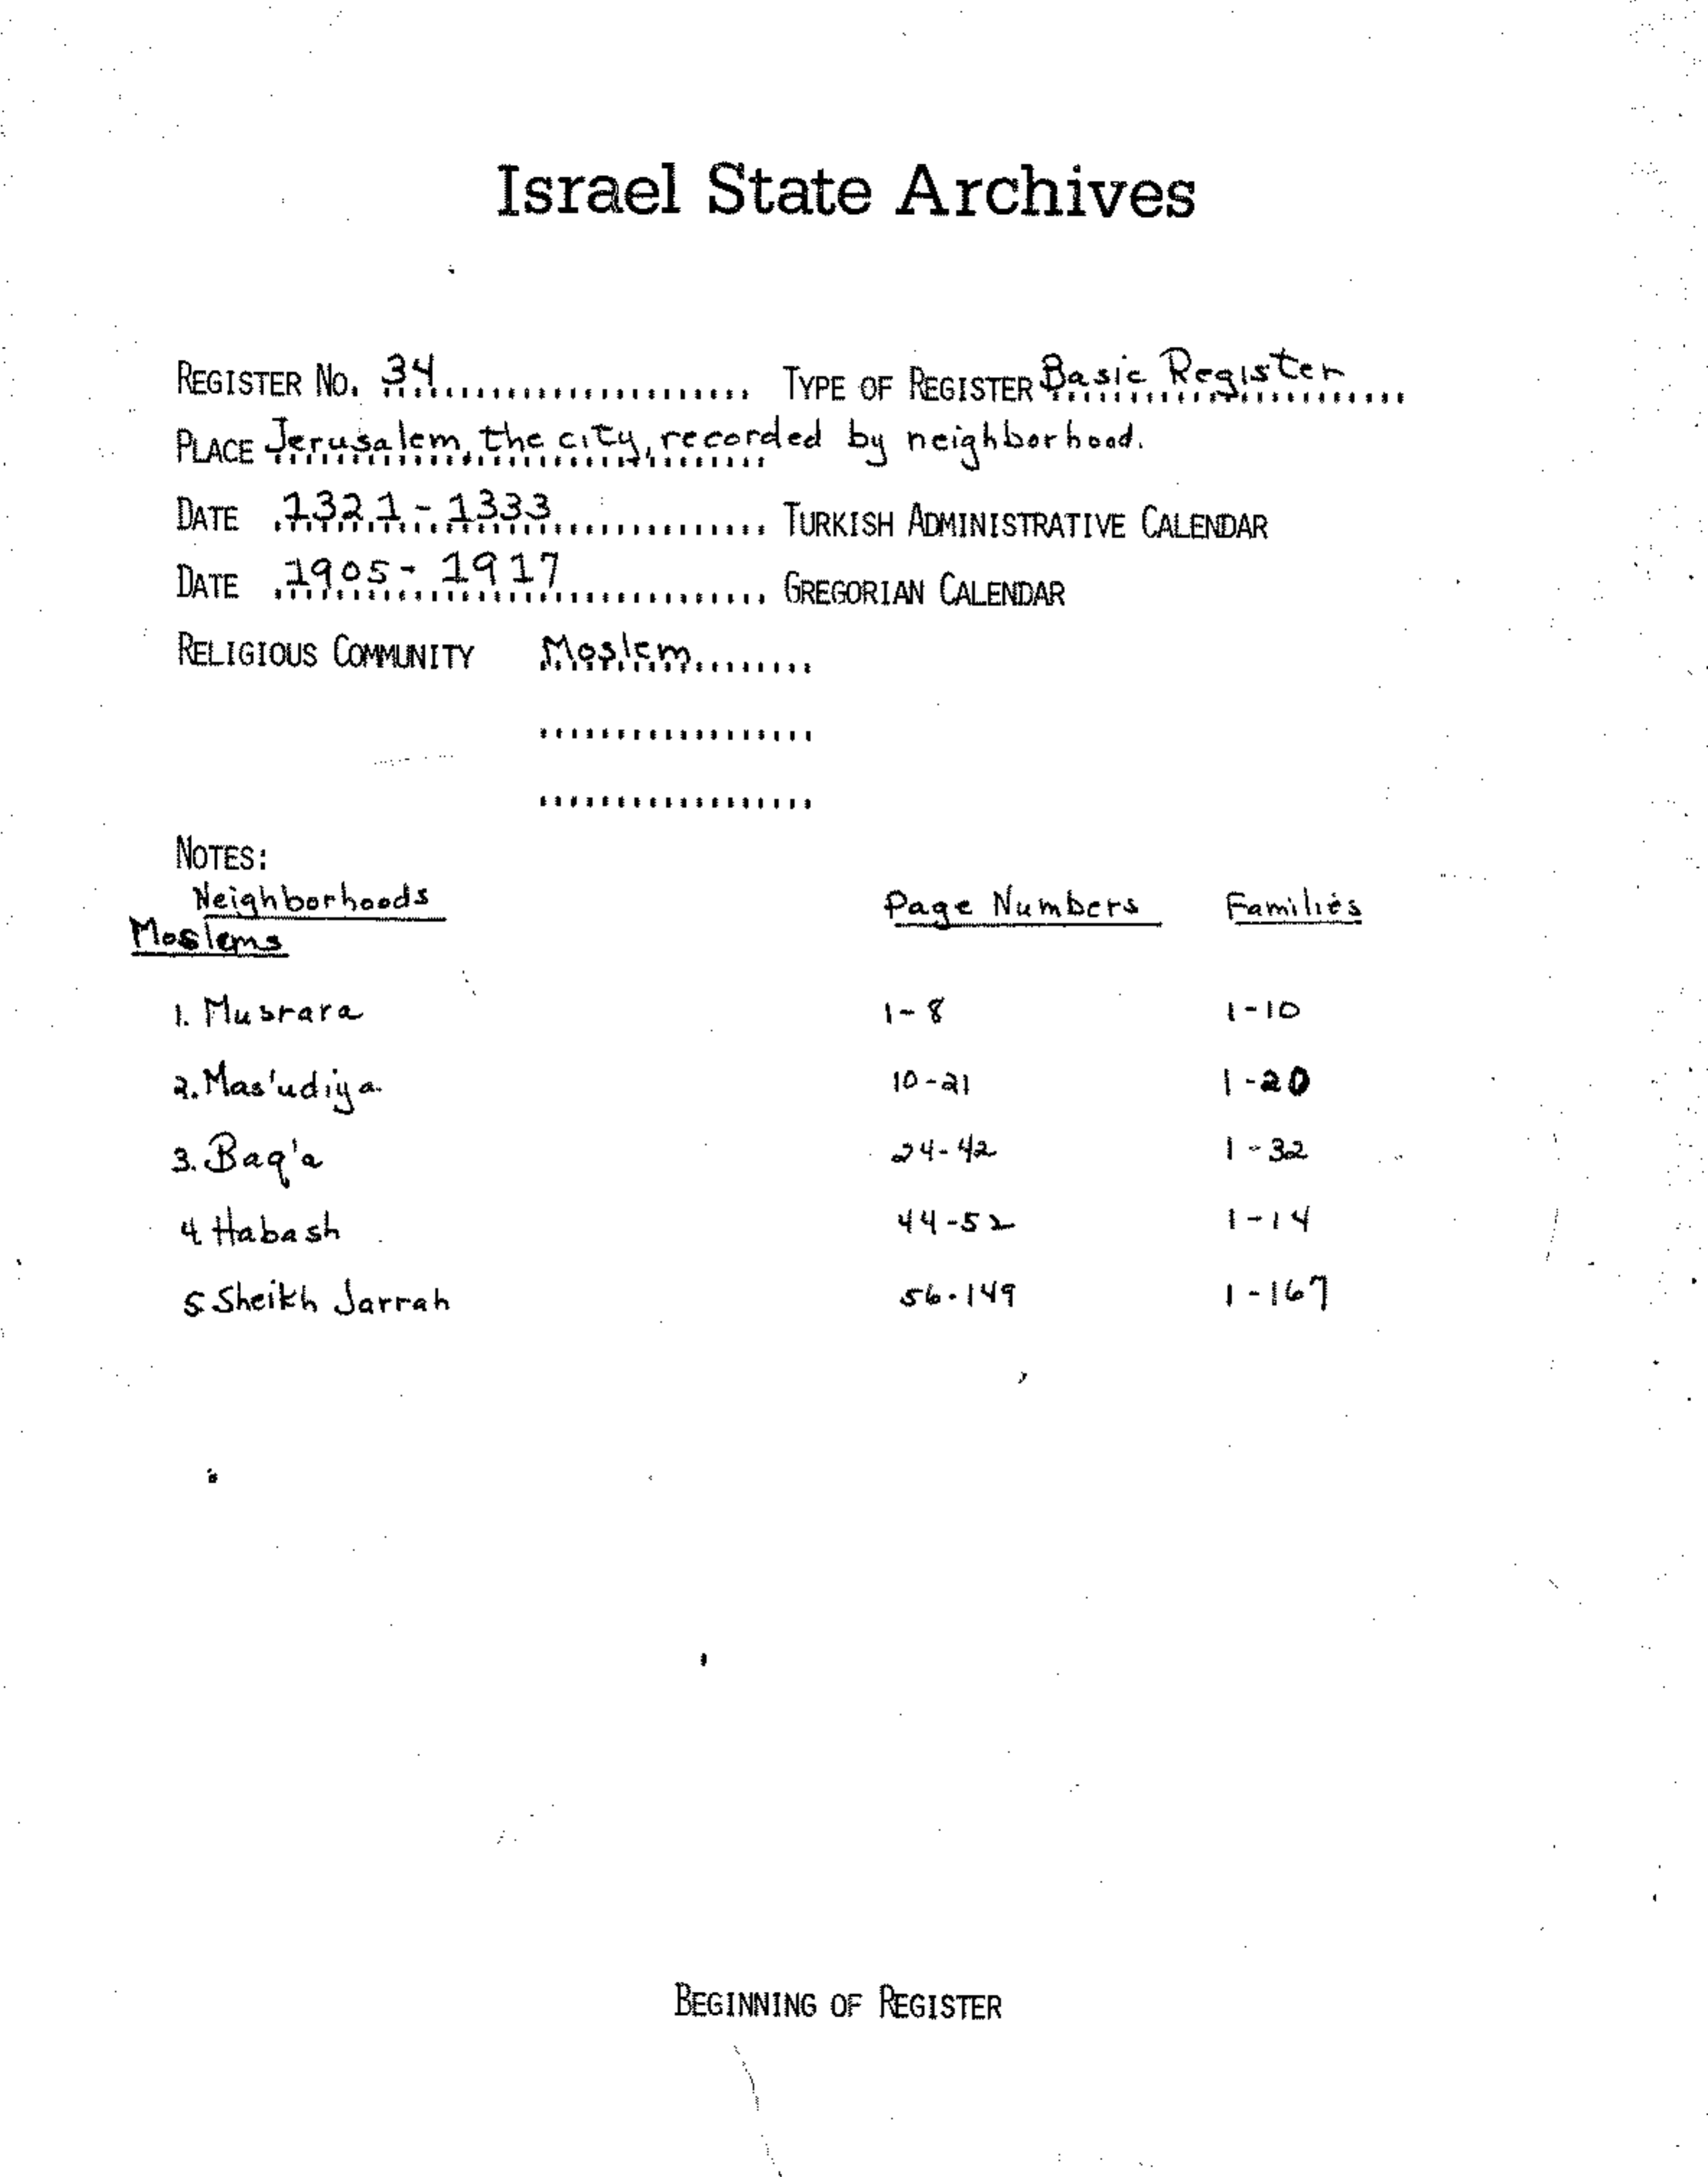 Israel State Archives
REGISTER NO. 34 TYPE OF REGISTER Basic Register
PLACE Jerusalem, the city, recorded by neighborhood.
DATE 1321-1333 TURKISH ADMINISTRATIVE CALENDAR
DATE 1905-1917 GREGORIAN CALENDAR
RELIGIOUS COMMUNITY Moslem
NOTES:
Neighborhoods Page Numbers Families
Moslems
1. Musrara 1-8 1-10
2. Mas'udiya 10-21 1-20
3. Baq'a 24-42 1-32
4 Habash 44-52 1-14
5. Sheikh Jarrah 56-149 1-167
BEGINNING OF REGISTER